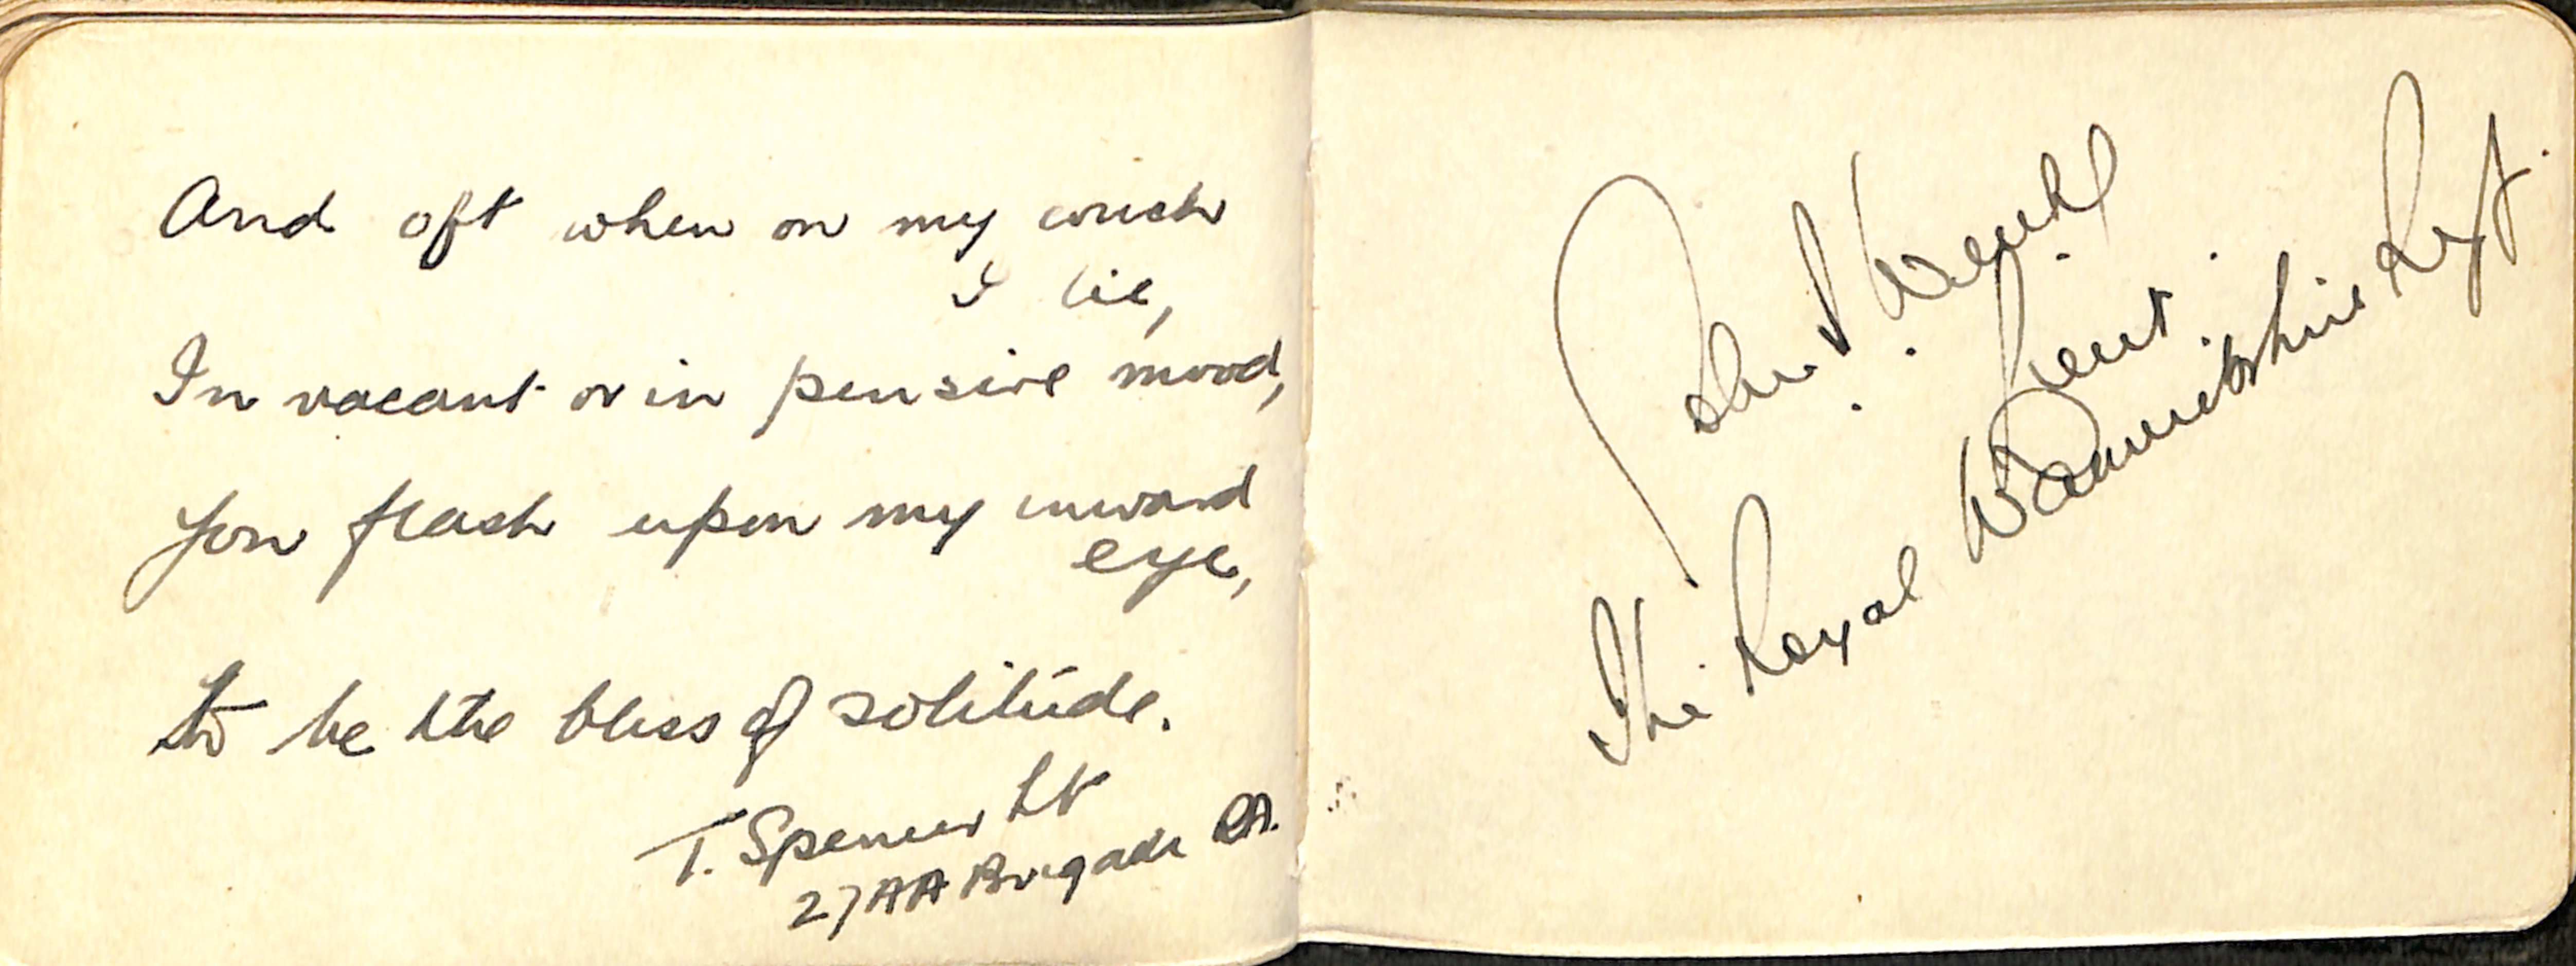 And oft when on my couch
I lie,
In vacant or in pensive mood,
You flash upon my inward
eye,
To be the bliss of solitude.
T. Spencer Lt
27 AA Brigade RA.
John
Lieut.
The Royal Warwickshire Regt.